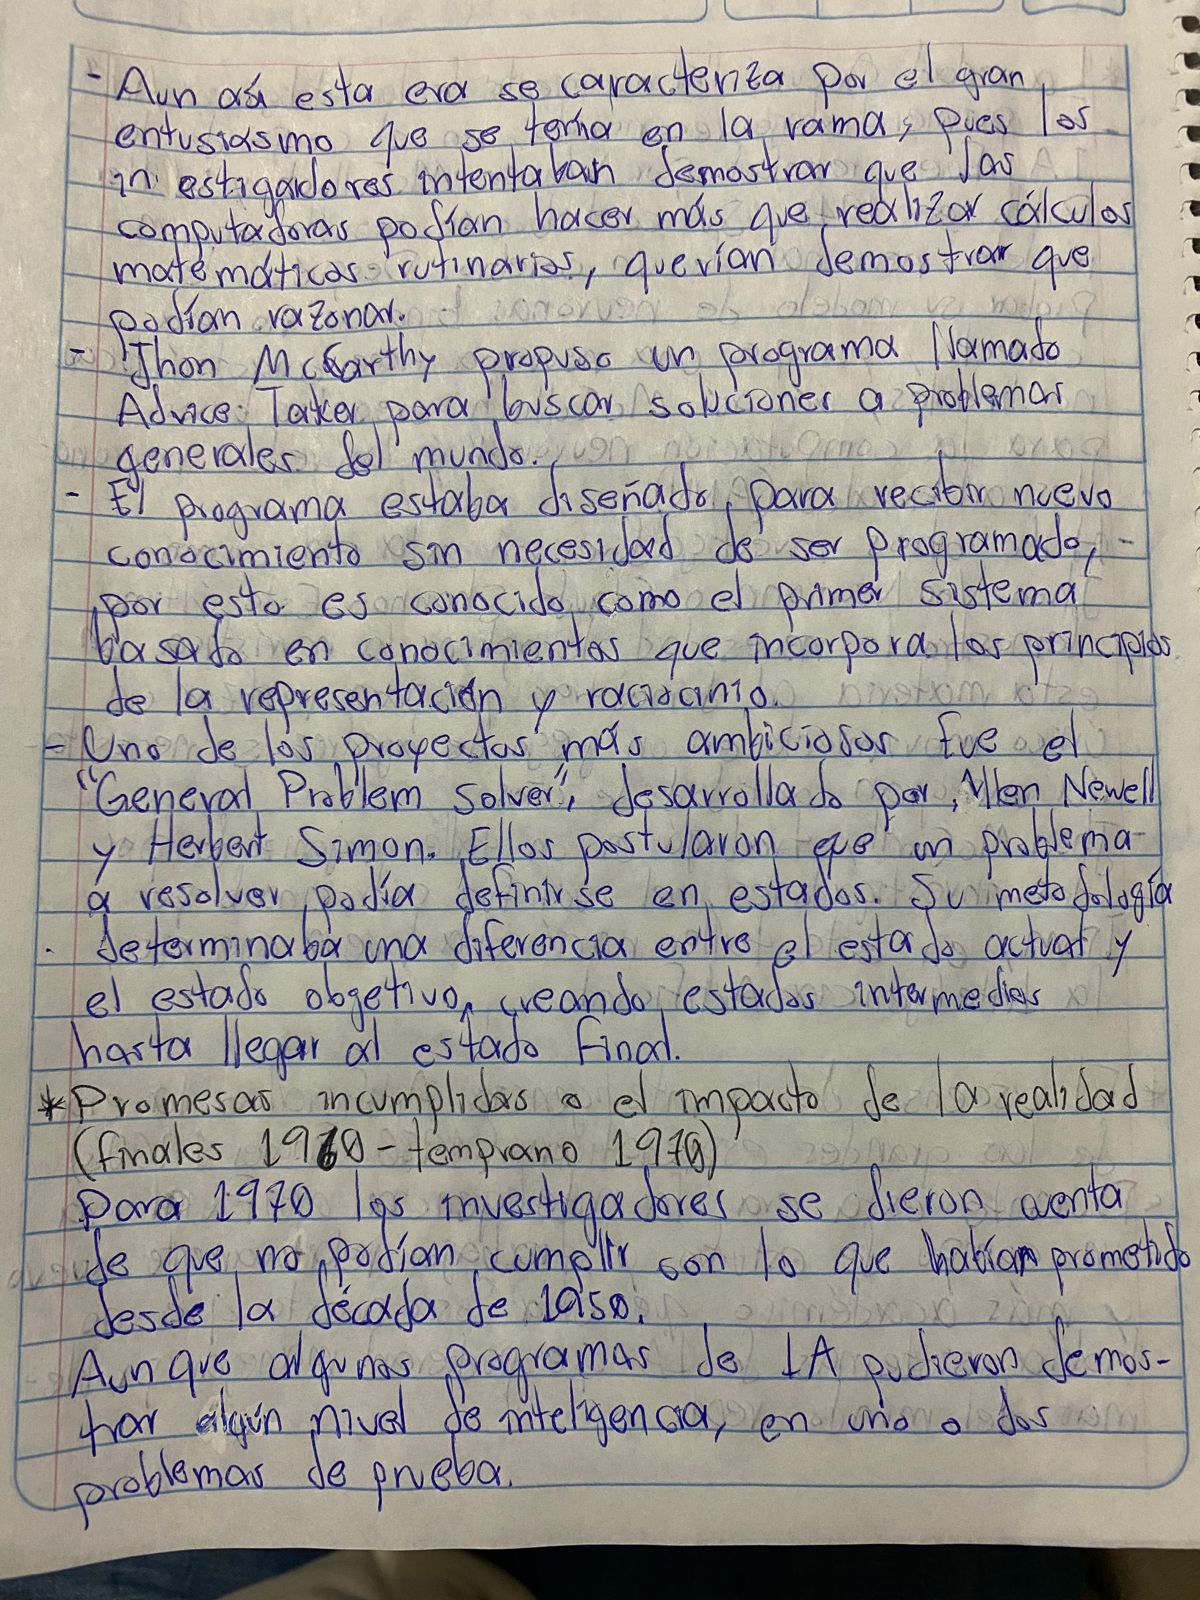 - Aun así esta era se caracteriza por el gran
entusiasmo que se tenía en la rama, pues los
in estigardores intentaban demostrar que las
computadoras podían hacer más que realizar cálculos
matemáticos rutinarios, querían demostrar que
podían razonar.
- Jhon McCarthy propuso un programa llamado
Advice Taker para buscar soluciones a problemas
generales del mundo.
- El programa estaba diseñado para recibir nuevo
conocimiento sin necesidad de ser programado,
por esto es conocido como el primer sistema
basado en conocimientos que incorpora los principios
de la representación y raciocinio.
- Uno de los proyectos más ambiciosos fue el
"General Problem Solver", desarrollado por Allen Newell
y Herbert Simon. Ellos postularon que un problema
a resolver podía definirse en estados. Su metodología
determinaba una diferencia entre el estado actual y
el estado obgetivo, creando estados intermedios
hasta llegar al estado final.
* Promesas incumplidas o el impacto de la realidad
(finales 1960 - temprano 1970)
Para 1970 los investigadores se dieron cuenta
de que no podían cumplir con lo que habían prometido
desde la década de 1950.
Aunque algunos programas de IA pudieron demos-
trar algún nivel de inteligencia, en uno o dos
problemas de prueba.